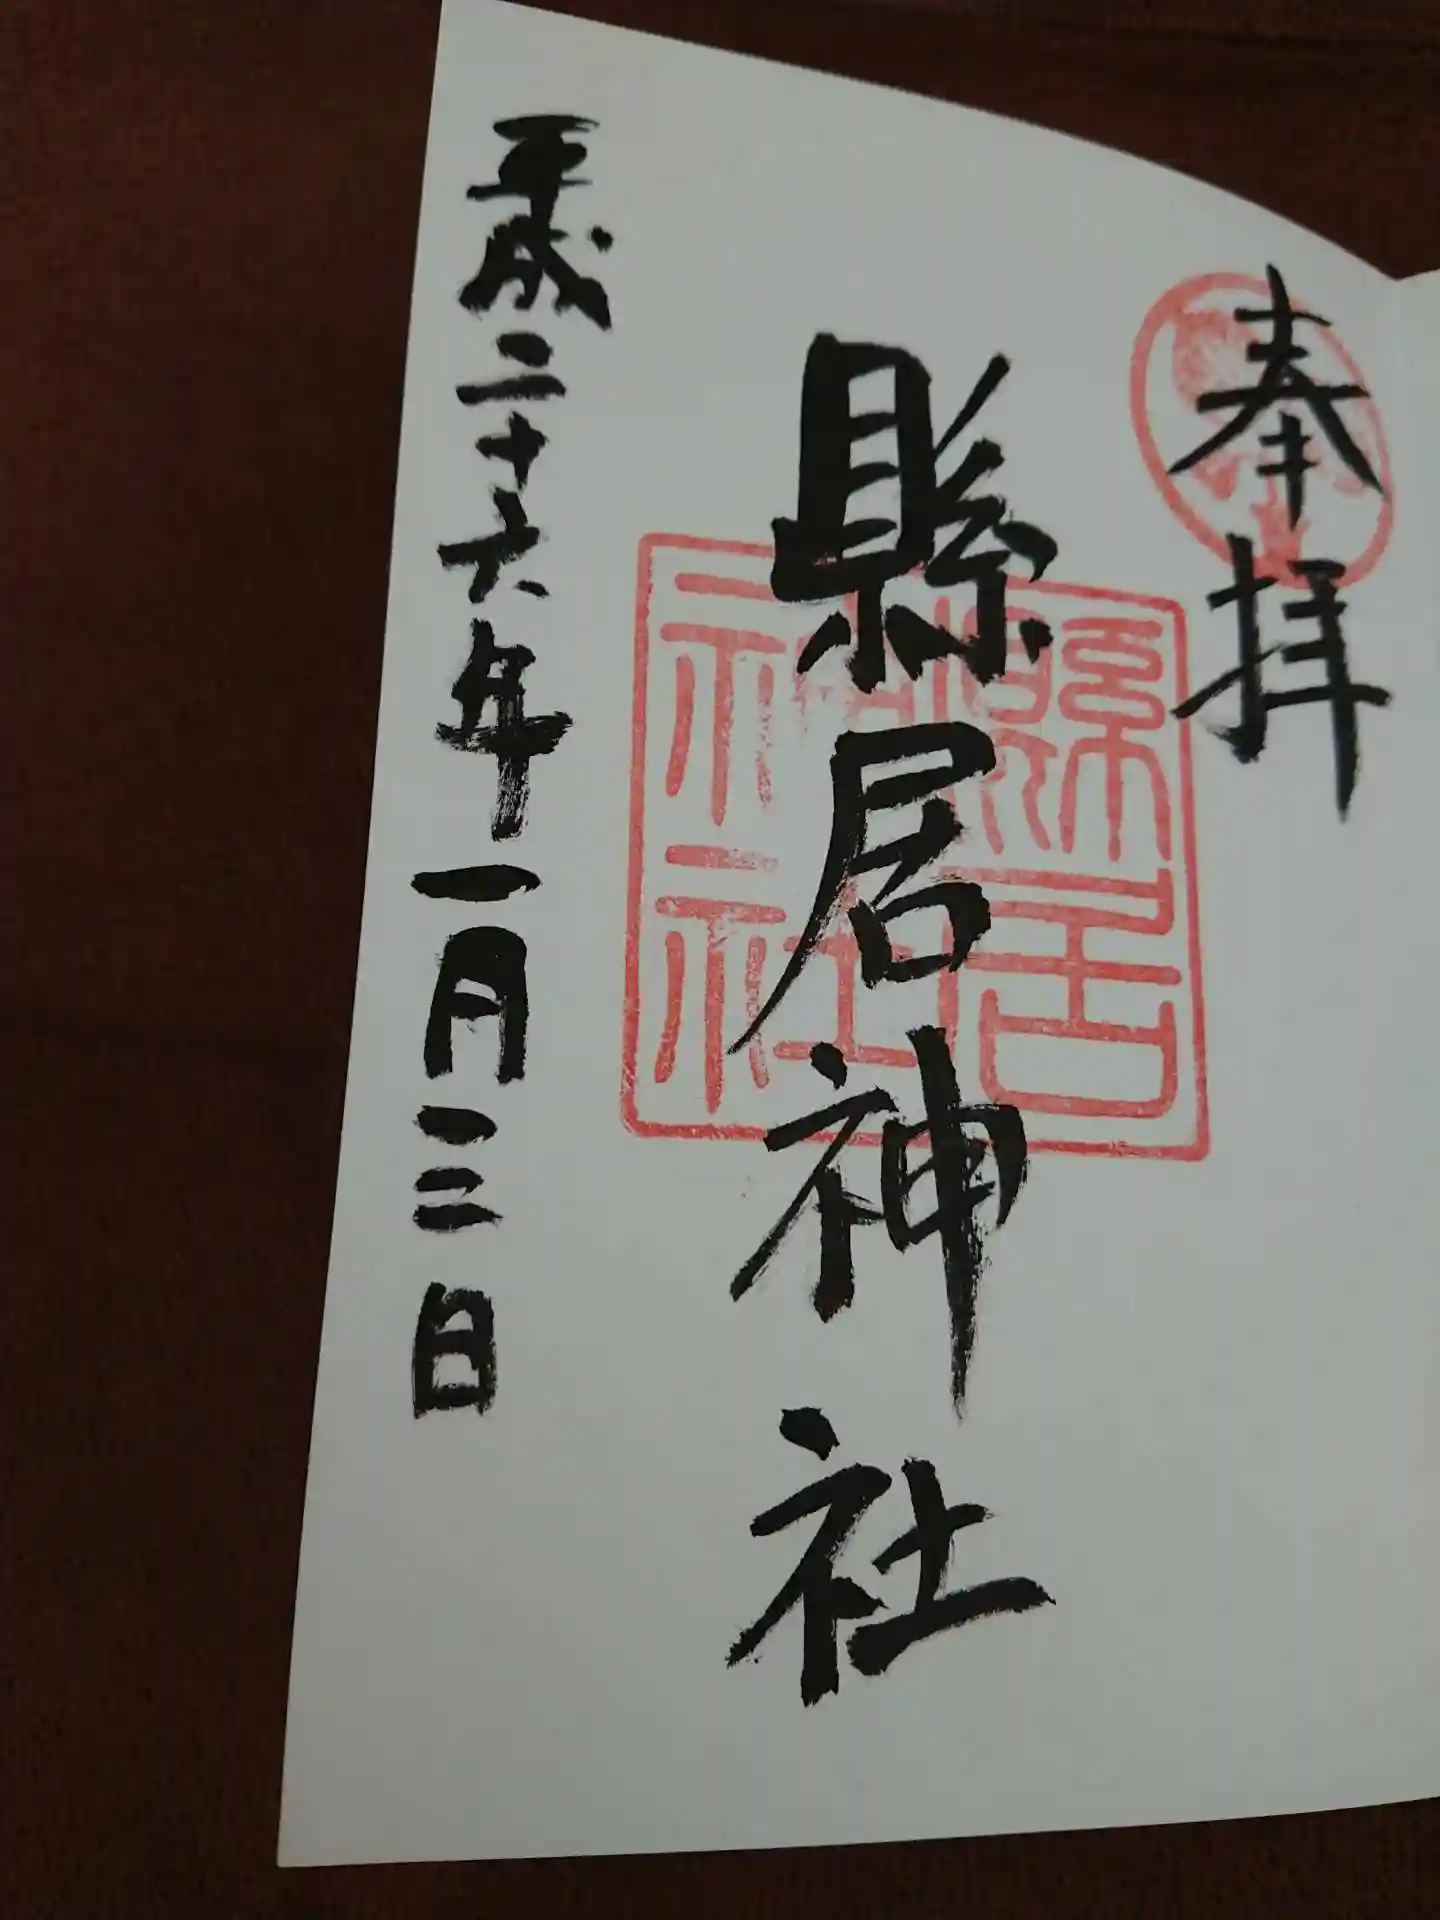 奉拝
縣居神社
縣居
神社
平成二十六年一月三日